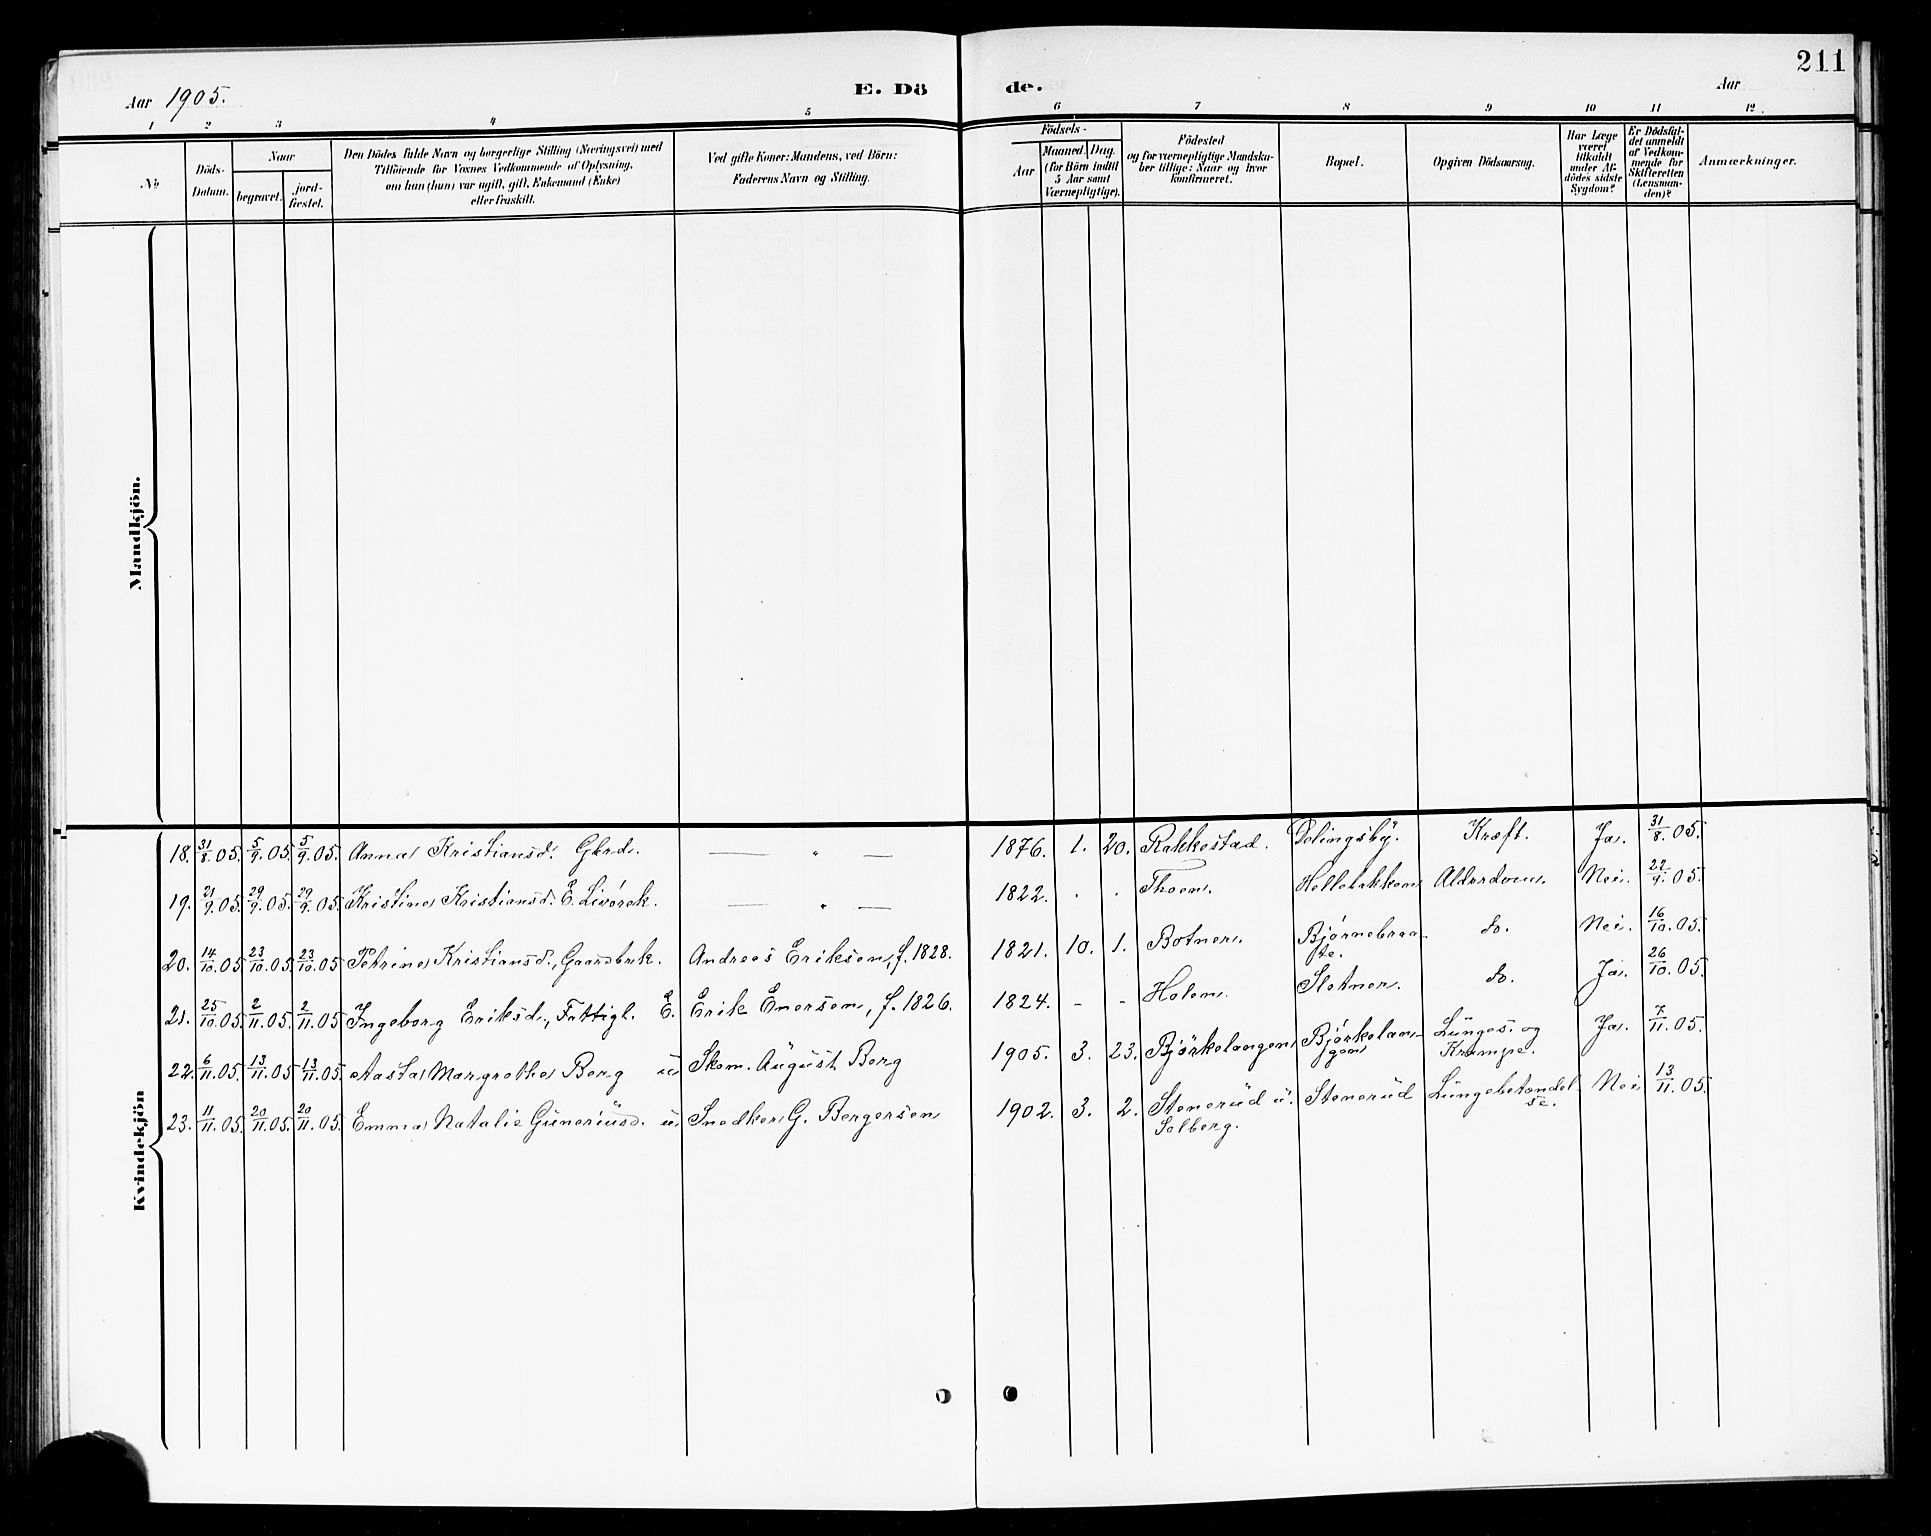 211
Aar 1905. E. Dö de. Aar
1 2 3 4 5 6 7 8 9 10 11 12
№
Döds-
Datum.
Naar
begravet.
jord-
fæstet.
Den Dödes fulde Navn og borgerlige Stilling (Næringsvei) med
Tilföiende for Voxnes Vedkommende af Oplysning,
om han (hun) var ugift, gift, Enkemand (Enke)
eller fraskilt.
Ved gifte Koner: Mandens, ved Börn:
Faderens Navn og Stilling.
Födsels-
Aar
Maaned. Dag.
(for Börn indtil
5 Aar samt
Værnepligtige).
Födested
og for værnepligtige Mandska-
ber tillige: Naar og hvor
konfirmeret.
Bopæl.
Opgiven Dödsaarsag.
Har Læge
været
tilkaldt
under Af-
dödes sidste
Sygdom?
Er Dödsfal-
det anmeldt
af Vedkom-
mende for
Skifteretten
(Lensman-
den)?
Anmærkninger.
Mandkjön.
Kvindekjön
18. 31/8.05. 5/9.05. 5/9.05. Anna Kristiansd. Gbrd. — " — 1876. 1. 20. Rakkestad. Delingsby. Kræft. Ja. 31/8.05.
19. 21/9.05. 29/9.05. 29/9.05. Kristine Kristiansd. E. Livörek. — " — 1822. . . Thoen. Hellebakken Alderdom. Nei. 22/9.05.
20. 14/10.05. 23/10.05. 23/10.05 Petrine Kristiansd., Gaardbrk. Andreas Eriksen, f. 1828. 1821. 10. 1. Botner. Bjørnebraa-
te. do. Nei. 16/10.05.
21. 25/10.05. 2/11.05. 2/11.05 Ingeborg Eriksd., Fattigl. E. Erik Enersen, f. 1826. 1824. - - Holen. Sletner. do. Ja. 26/10.05.
22. 6/11.05. 13/11.05 13/11.05. Aasta Margrethe Berg u Skom. August Berg 1905. 3. 23. Bjørkelangen Bjørkelan-
gen Lunges. og
Krampe. Ja. 7/11.05.
23. 11/11.05. 20/11.05. 20/11.05. Emma Natalie Guneriusd. u Snedker G. Bergersen 1902. 3. 2. Stenerud u.
Solberg. Stenerud Lungebetændel
se. Nei 13/11.05.